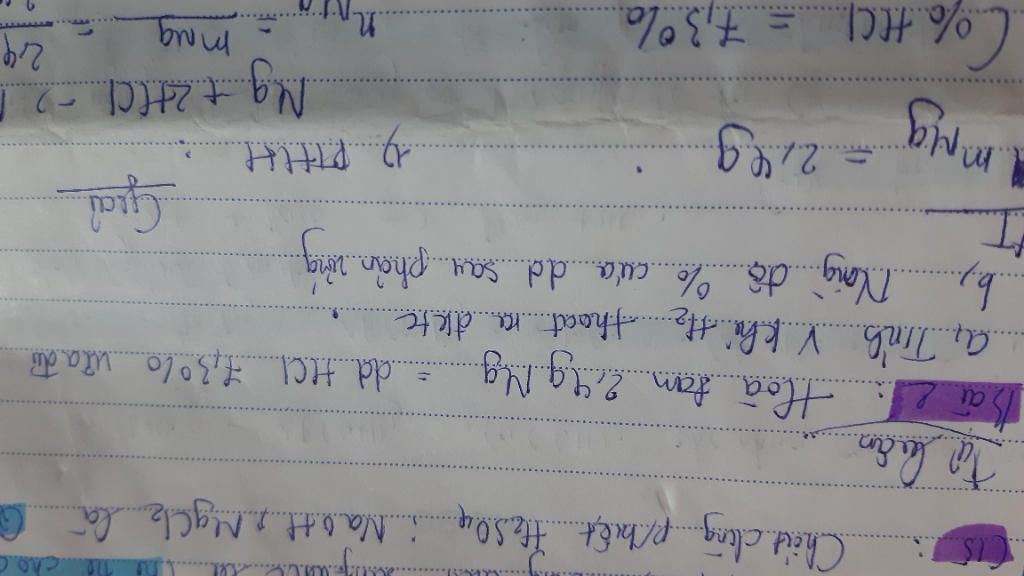 C15 : Chất dùng p/biệt H₂SO₄ ; NaOH , MgCl₂ là
Tự luận
Bài 2 : Hoà tan 2,4g Mg = dd HCl 7,3% vừa đủ
a, Tính V khí H₂ thoát ra đktc .
b, Nồng độ % của dd sau phản ứng
Giải
mMg = 2,4g . 1) PTHH :
Mg + 2HCl →
C% HCl = 7,3% nMg = mMg = 2,4